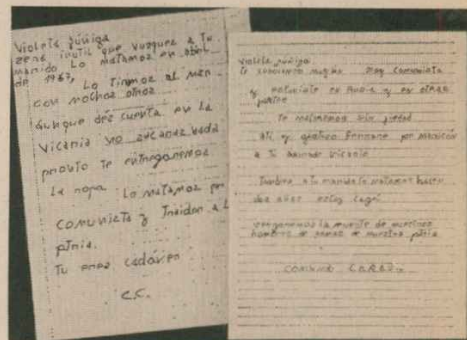 Violeta Zúñiga
será inútil que busques a tu
marido Lo matamos en abril
de 1967,
Lo tiramos al mar
con muchos otros
Aunque des cuenta en la
Vicaria no sacaras nada
pronto te entregaremos
la ropa Lo matamos por
comunista y traidor a la
ptria.
Tu eres cadáver
C.C.
Violeta Zúñiga
muy comunista
y estuviste en Rusia y en otras
partes
Te mataremos sin piedad
Ali y por
a Tu Vicaria
Tambien a tu marido lo matamos hacen
dos años
vengaremos la muerte de nuestros
hombres de nuestra ptria
COMANDO